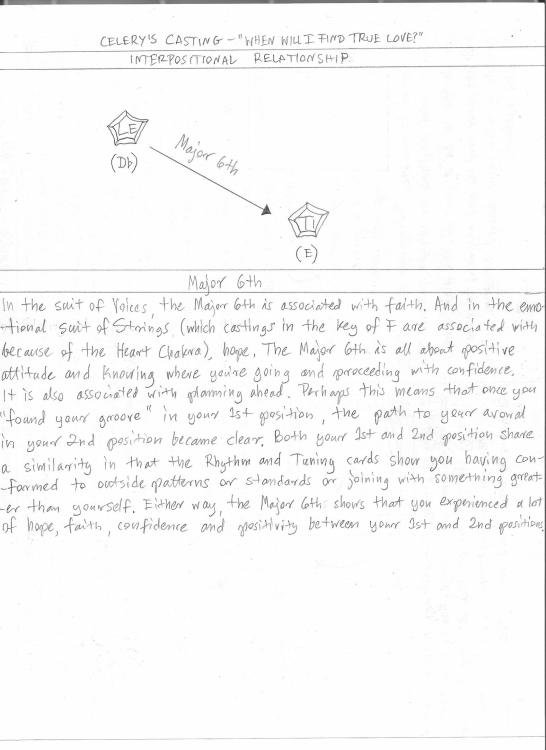 CELERY'S CASTING - "WHEN WILL I FIND TRUE LOVE?"
INTERPOSITIONAL RELATIONSHIP
LE
(Db)
Major 6th
TI
(E)
Major 6th
In the suit of Voices, the Major 6th is associated with faith. And in the emo-
-tional suit of Strings (which castings in the key of F are associated with
because of the Heart Chakra), hope. The Major 6th is all about positive
attitude and knowing where you're going and proceeding with confidence.
It is also associated with planning ahead. Perhaps this means that once you
"found your groove" in your 1st position, the path to your avowal
in your 2nd position became clear. Both your 1st and 2nd position share
a similarity in that the Rhythm and Tuning cards show you having con-
-formed to outside patterns or standards or joining with something great-
-er than yourself. Either way, the Major 6th shows that you experienced a lot
of hope, faith, confidence and positivity between your 1st and 2nd positions.